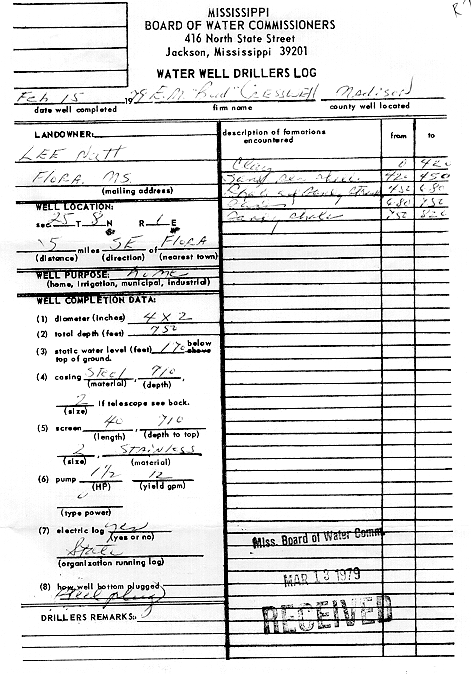 MISSISSIPPI
BOARD OF WATER COMMISSIONERS
416 North State Street
Jackson, Mississippi 39201
WATER WELL DRILLERS LOG
Feb 15 1979 E.M. "Bud" Cresswell Madison
date well completed firm name county well located
LANDOWNER:
LEE Nutt
FLORA, MS
(mailing address)
WELL LOCATION:
sec 25 T. 8 N R. 1 E
5 miles SE of FLORA
(distance) (direction) (nearest town)
WELL PURPOSE: HOME
(home, irrigation, municipal, industrial)
WELL COMPLETION DATA:
(1) diameter (inches) 4 X 2
(2) total depth (feet) 752
(3) static water level (feet) 170 below above
top of ground.
(4) casing STEEL, 710,
(material) (depth)
2 If telescope see back.
(size)
(5) screen 40, 710
(length) (depth to top)
2, STAINLESS
(size) (material)
(6) pump 1 1/2 12
(HP) (yield gpm)
(type power)
(7) electric log yes
(yes or no)
State
(organization running log)
(8) how well bottom plugged
Steel plug
DRILLERS REMARKS:
description of formations encountered from to
Clay 0 420
Sand 420 450
452 680
680 752
Sandy 752
Miss. Board of Water Comm.
MAR 13 1979
RECEIVED